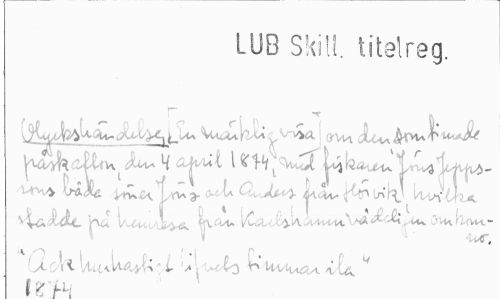 LUB Skill. titelreg.
Olyckshändelse, [En märklig visa] om den som timade
påskafton, den 4 april 1874, med fiskaren Jöns Jepps-
sons båda söner Jöns och Anders från Hörvik, hvilka
stadde på hemresa från Karlshamn vådeligen omkom-
no.
"Ack hur hastigt lifvets timmar ila"
1874